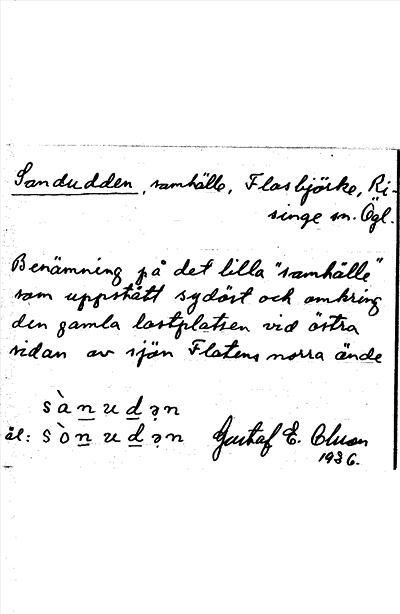 Sandudden, samhälle, Flasbjörke, Ri-
singe sn. Ögl.
Benämning på det lilla "samhälle"
som uppstått sydöst och omkring
den gamla lastplatsen vid östra
sidan av sjön Flatens norra ände
sànudən
ål: sònudən Gustaf E. Olson
1936.